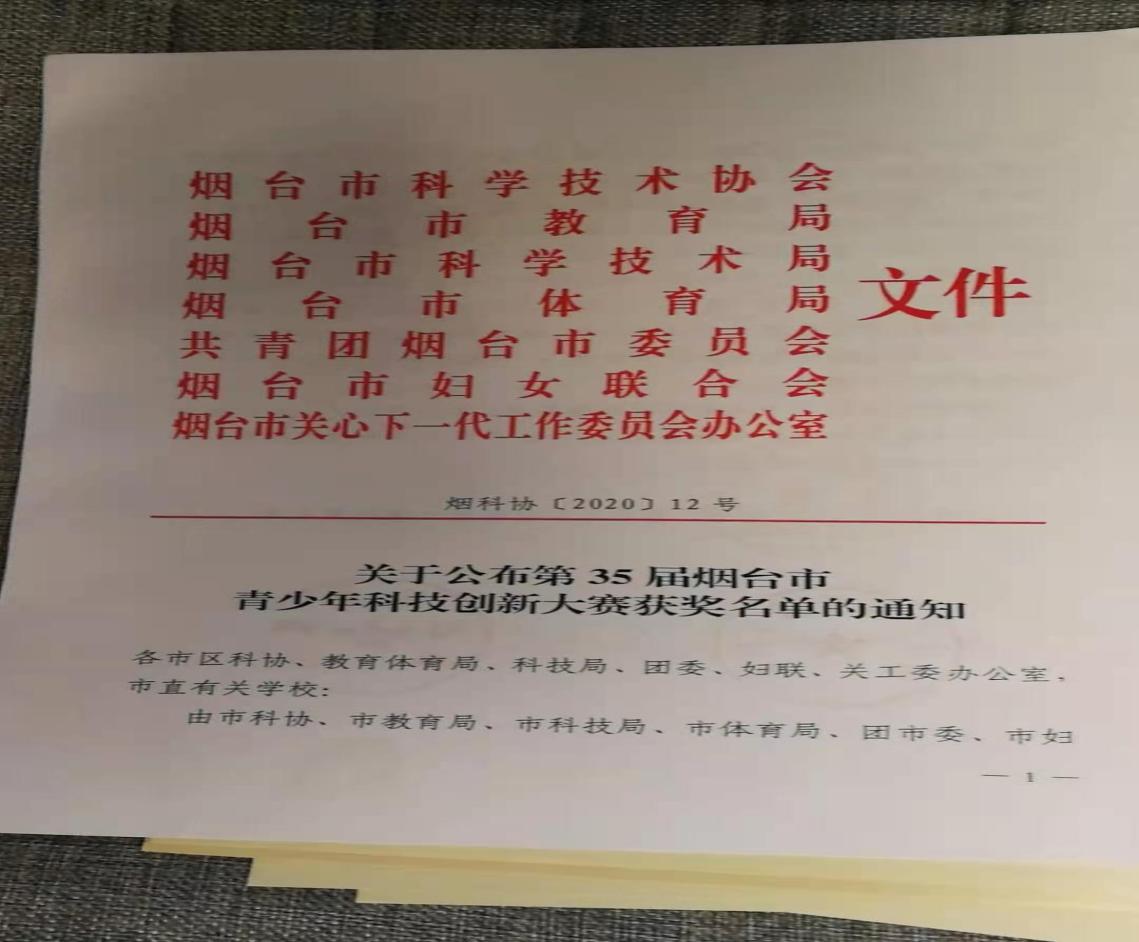 烟台市科学技术协会
烟台市教育局
烟台市科学技术局
烟台市体育局
共青团烟台市委员会
烟台市妇女联合会
烟台市关心下一代工作委员会办公室
文件
烟科协〔2020〕12 号
关于公布第 35 届烟台市
青少年科技创新大赛获奖名单的通知
各市区科协、教育体育局、科技局、团委、妇联、关工委办公室，
市直有关学校:
由市科协、市教育局、市科技局、市体育局、团市委、市妇
— 1 —